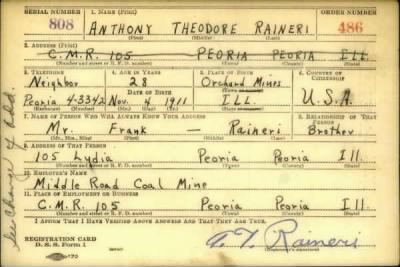 SERIAL NUMBER 1. NAME (Print) ORDER NUMBER
808 ANTHONY THEODORE RAINERI 486
(First) (Middle) (Last)
2. ADDRESS (Print)
C.M.R. 105 PEORIA PEORIA ILL.
(Number and street or R. F. D. number) (Town) (County) (State)
3. TELEPHONE 4. AGE IN YEARS 5. PLACE OF BIRTH 6. COUNTRY OF CITIZENSHIP
Neighbor 28 Orchard Mines
DATE OF BIRTH (Town or county)
Peoria 4-3342 Nov. 4 1911 ILL. U.S.A.
(Exchange) (Number) (Mo.) (Day) (Yr.) (State or country)
7. NAME OF PERSON WHO WILL ALWAYS KNOW YOUR ADDRESS 8. RELATIONSHIP OF THAT PERSON
Mr. Frank — Raineri Brother
(Mr., Mrs., Miss) (First) (Middle) (Last)
9. ADDRESS OF THAT PERSON
105 Lydia Peoria Peoria Ill.
(Number and street or R. F. D. number) (Town) (County) (State)
10. EMPLOYER'S NAME
Middle Road Coal Mine
11. PLACE OF EMPLOYMENT OR BUSINESS
C.M.R. 105 Peoria Peoria Ill.
(Number and street or R. F. D. number) (Town) (County) (State)
I AFFIRM THAT I HAVE VERIFIED ABOVE ANSWERS AND THAT THEY ARE TRUE.
REGISTRATION CARD
D. S. S. Form 1
A. T. Raineri
See Change of Add.